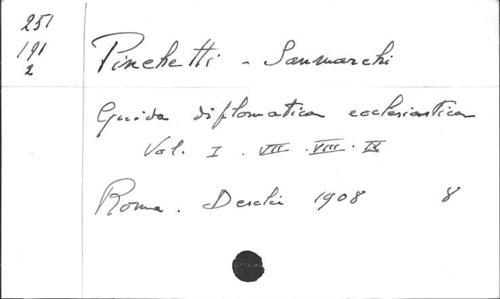 251
191
2
Pinchetti - Sanmarchi
Guida diplomatica ecclesiastica
Vol. I . VII . VIII . IX
Roma . Desclée 1908 8